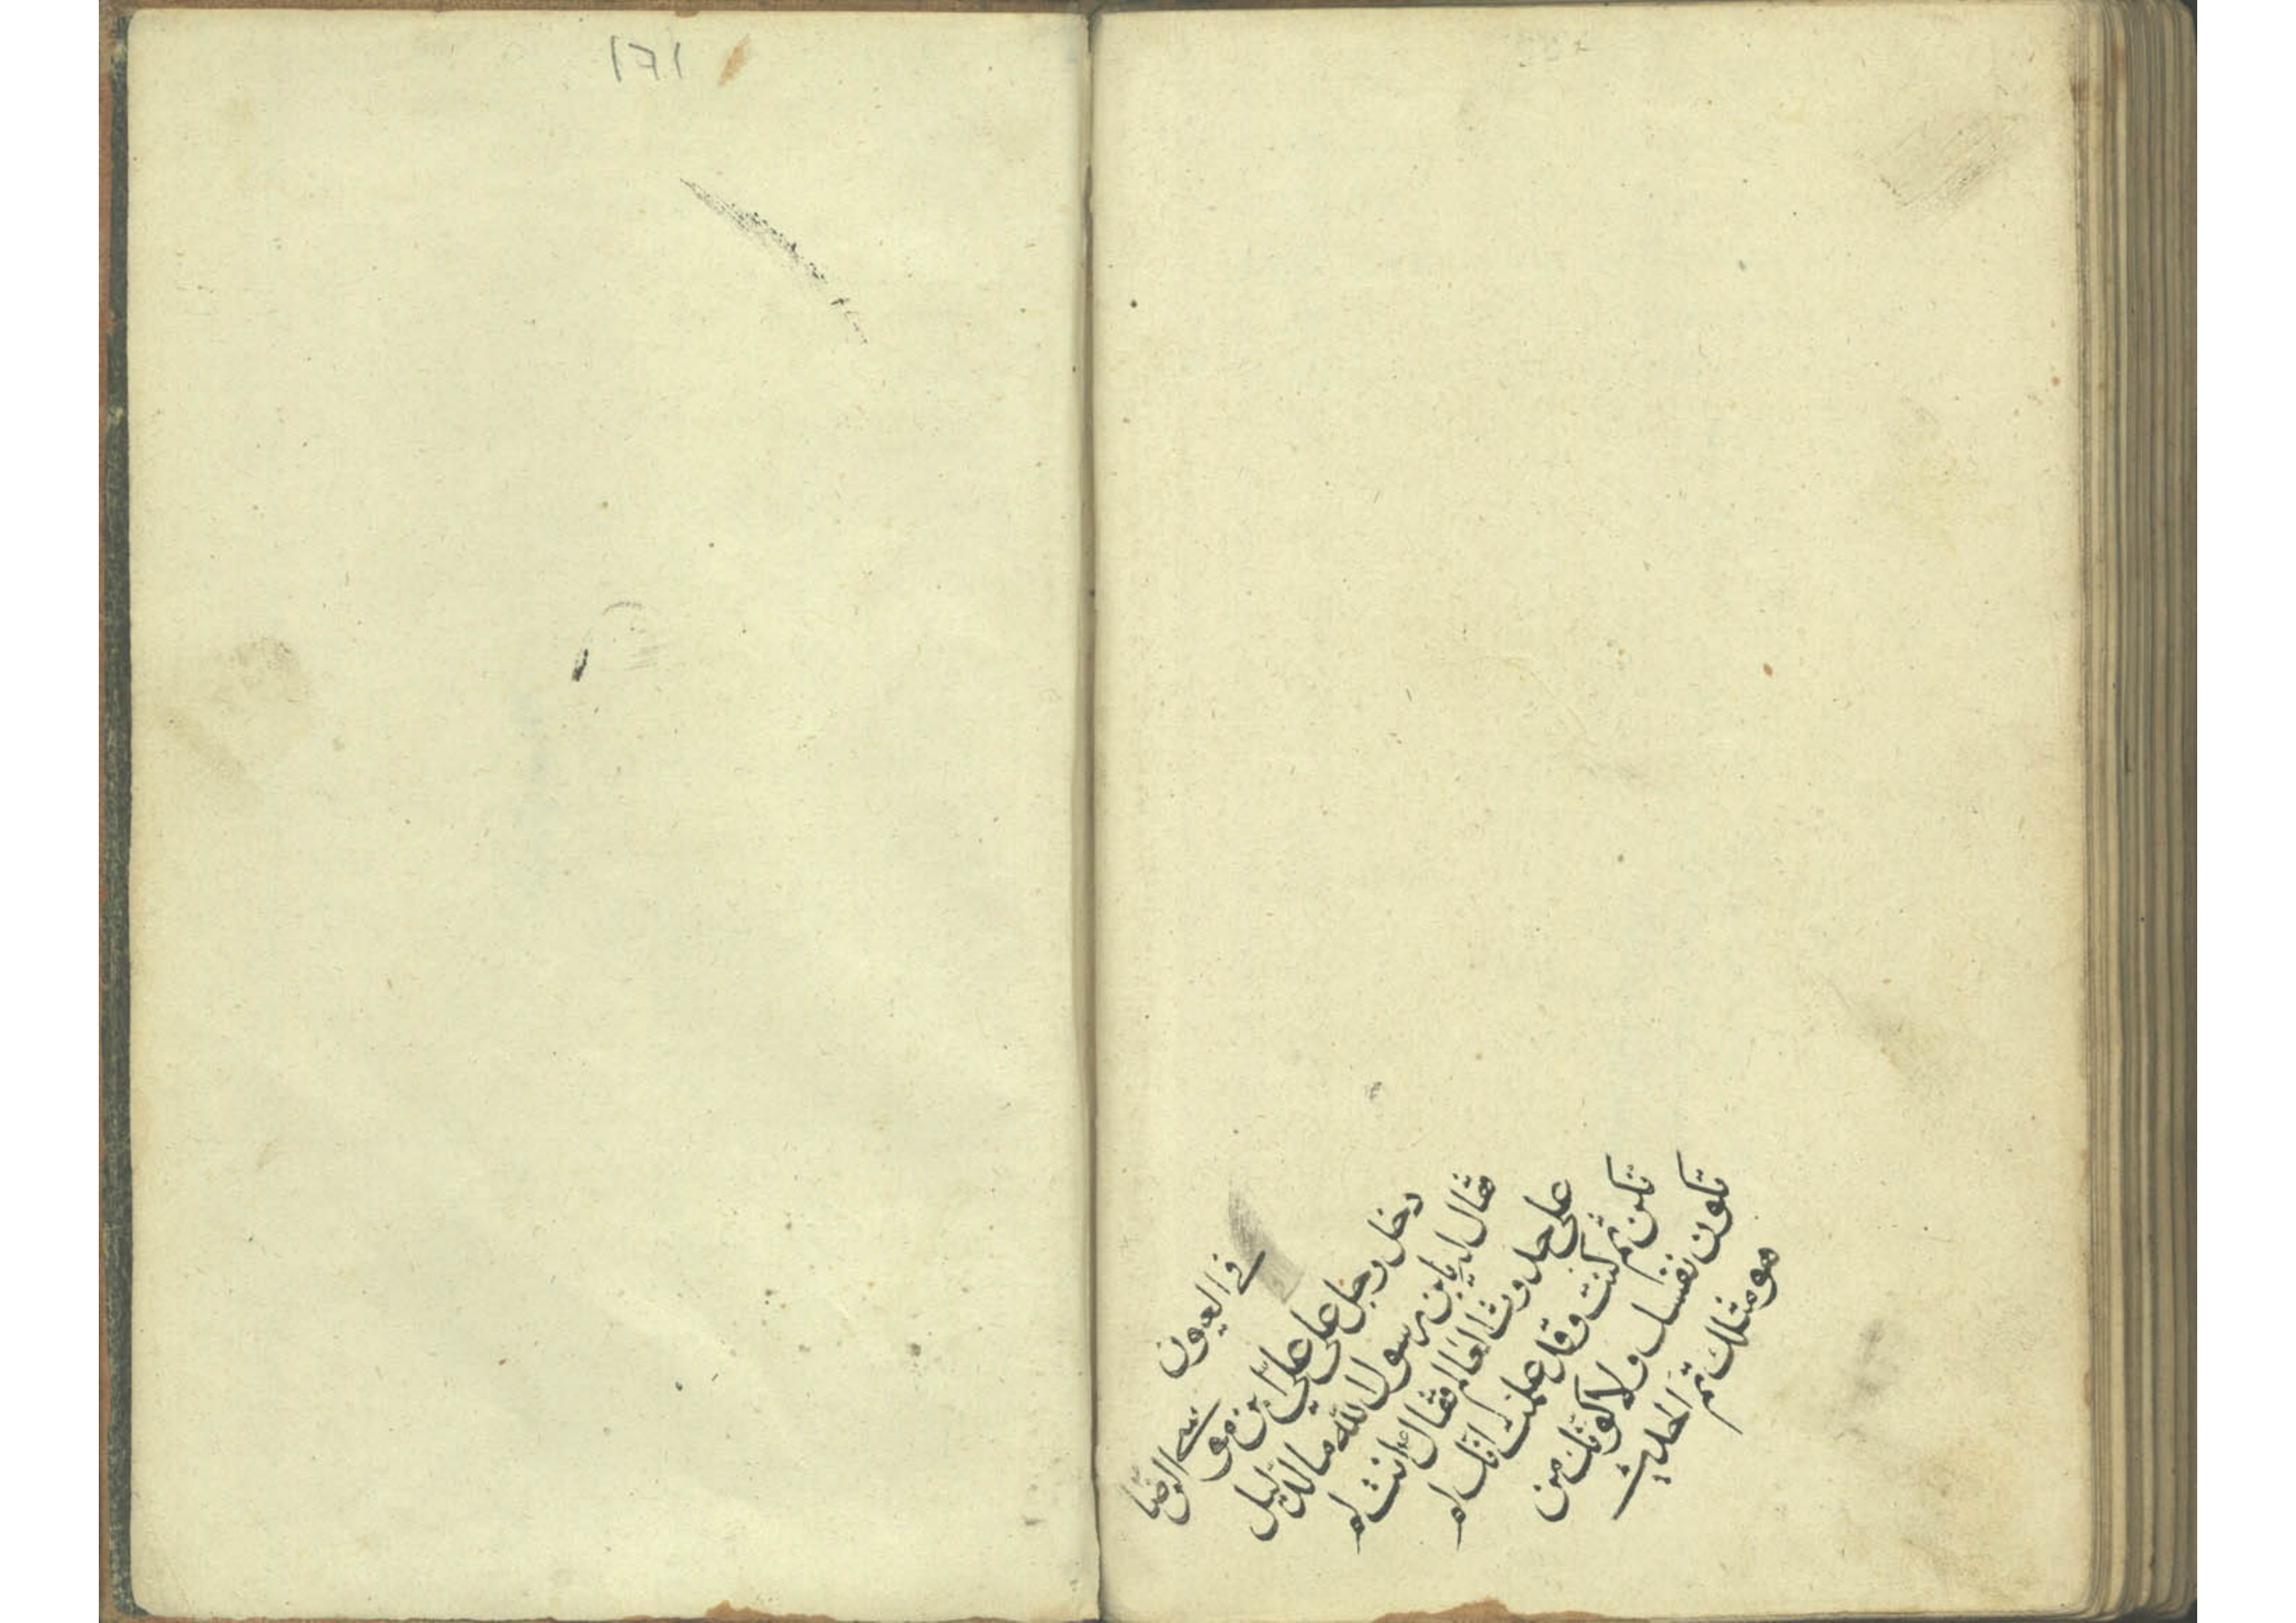 ١٦١
في العيون
دخل رجل على علي بن موسى الرضا
فقال له يا بن رسول الله ما الدليل
على حدوث العالم فقال انت لم
تكن ثم كنت وقد علمت انك لم
تكون نفسك ولا كونك من
هو مثلك تم الحديث